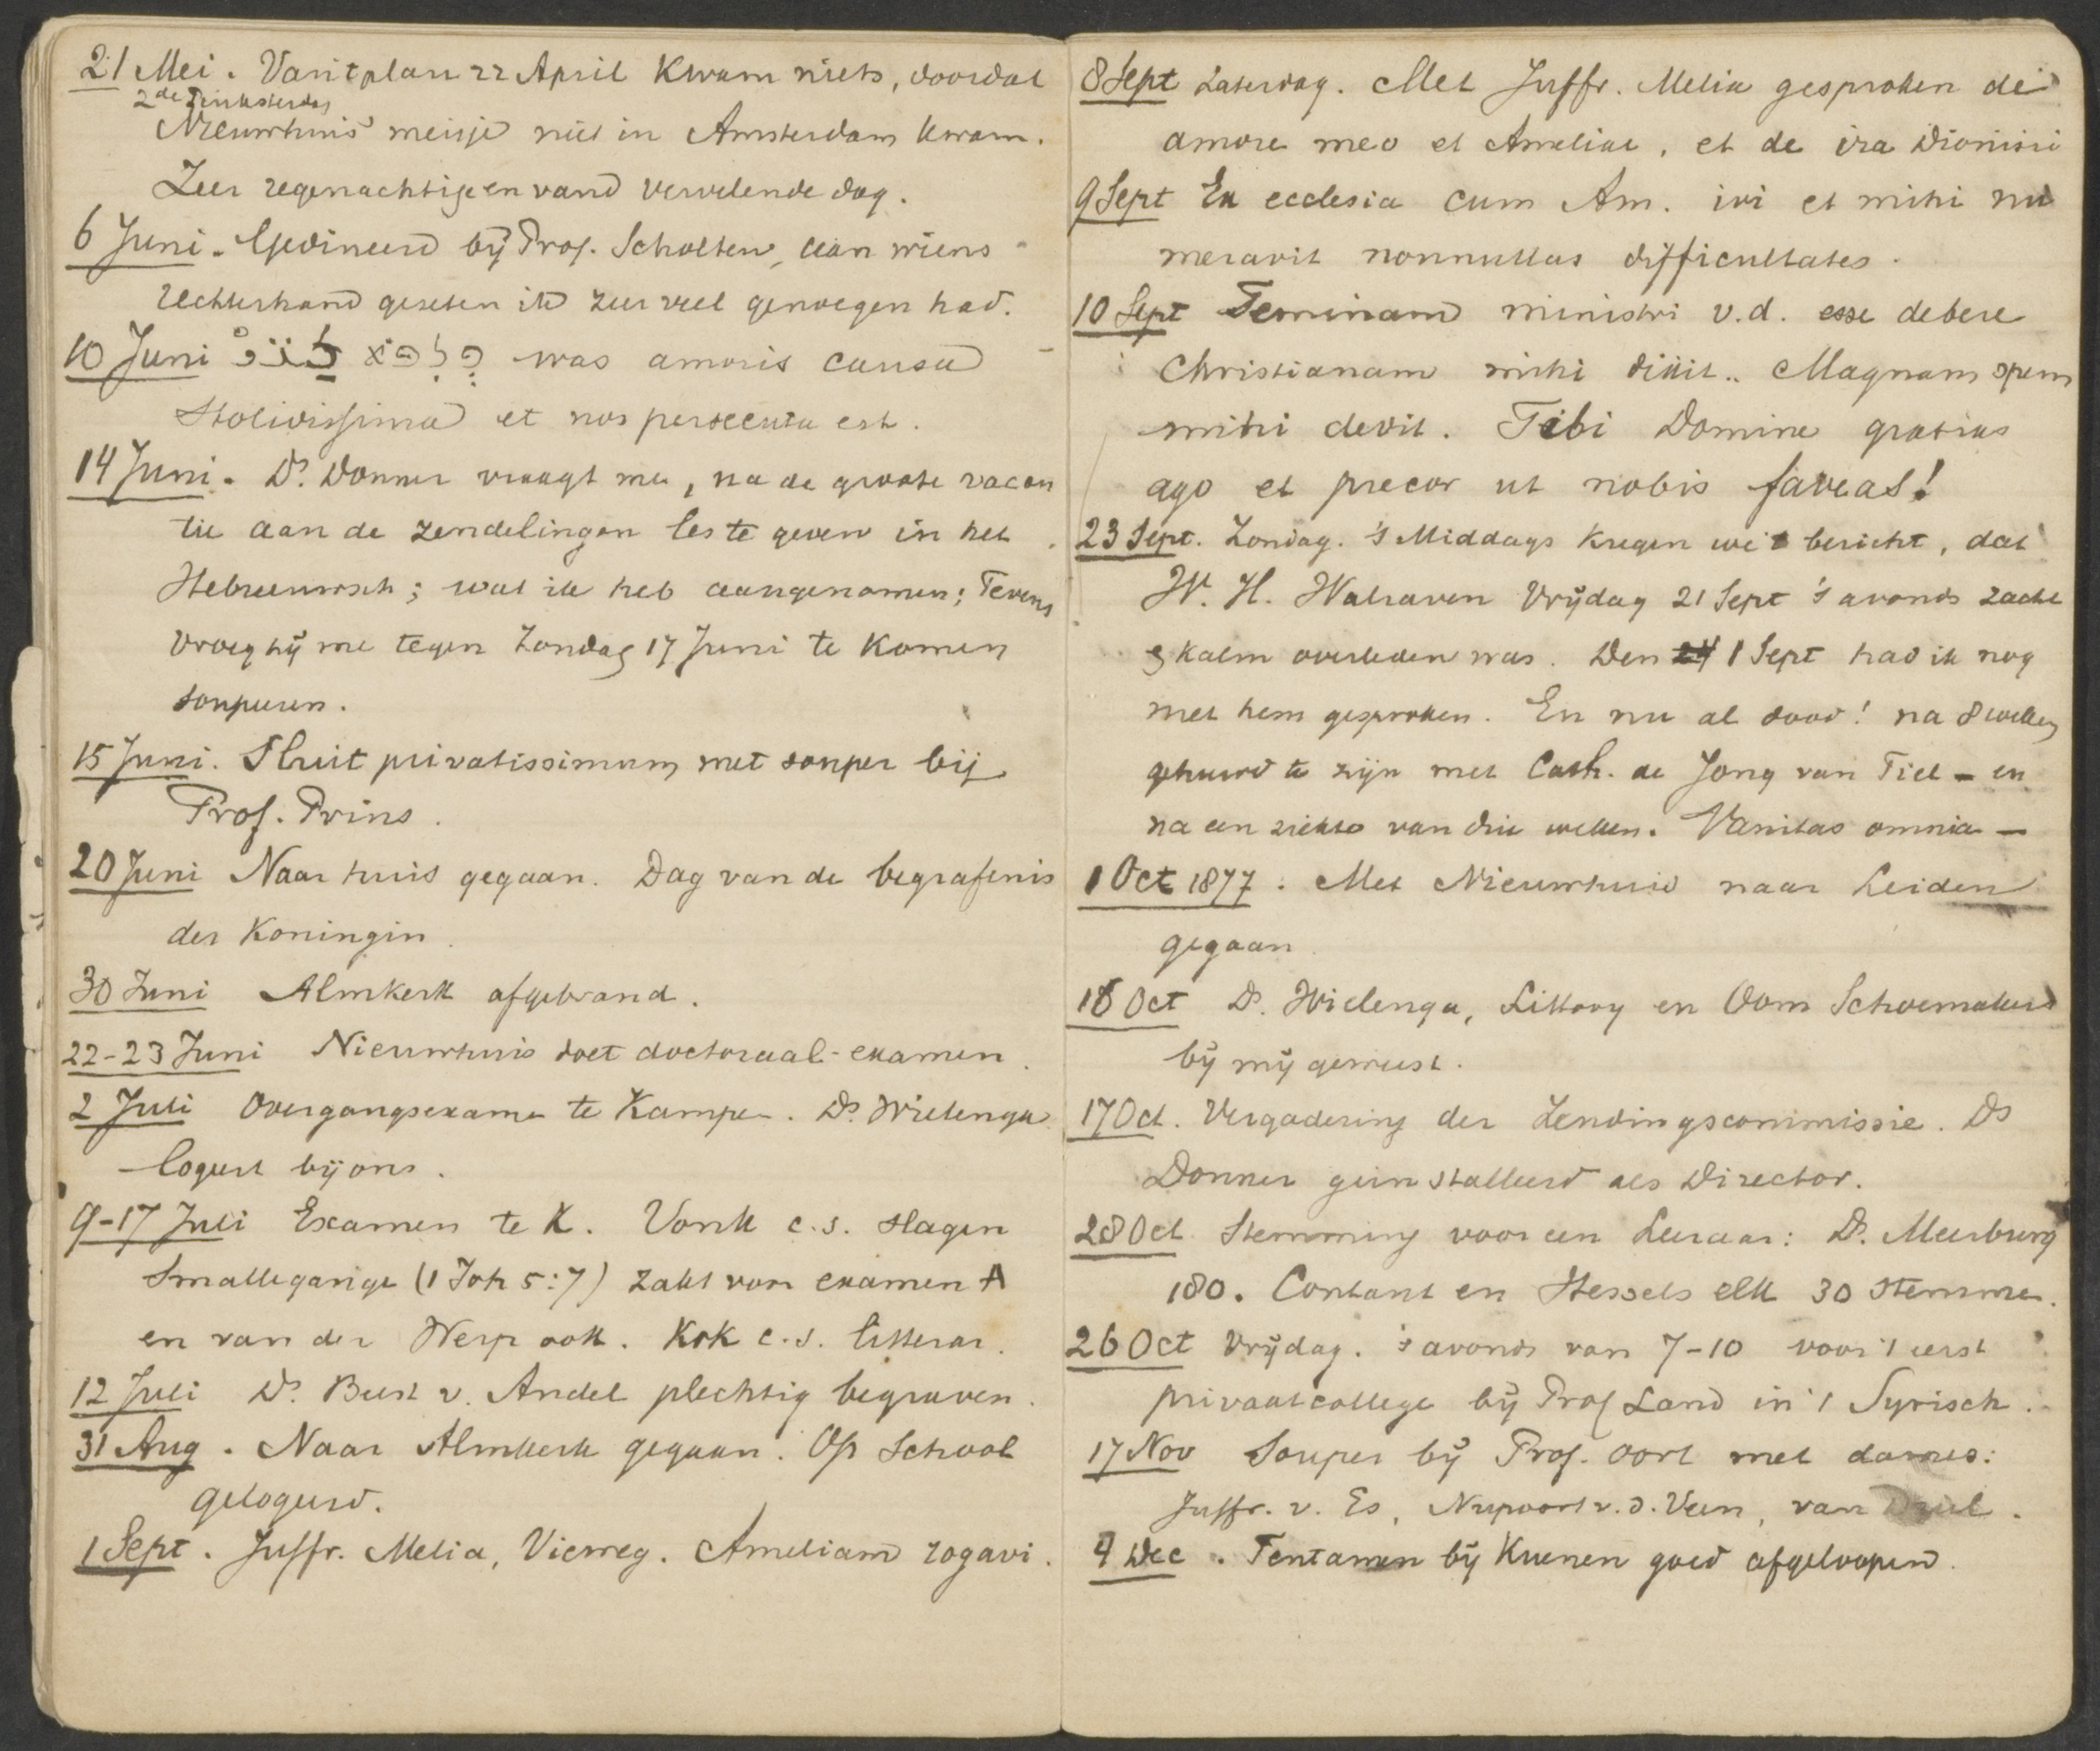 21 Mei. Van 't plan 22 April kwam niets, doordat
2de Pinksterdag
Nieuwhuis' meisje niet in Amsterdam kwam.
Zeer regenachtige en vervelende dag.
6 Juni. Gedineerd bij Prof. Scholten, aan wiens
rechterhand gezeten ik zeer veel genoegen had.
10 Juni was amoris causa
stolidissima et nos persecuta est.
14 Juni. Ds. Donner vraagt me, na de groote vacan
tie aan de zendelingen les te geven in het
Hebreeuwsch; wat ik heb aangenomen; Tevens
vroeg hij me tegen Zondag 17 Juni te komen
soupeeren.
15 Juni. Sluit privatissimum met souper bij
Prof. Prins.
20 Juni Naar huis gegaan. Dag van de begrafenis
der Koningin.
30 Juni Almkerk afgebrand.
22-23 Juni Nieuwhuis doet doctoraal-examen.
2 Juli Overgangsexamen te Kampen. Ds. Wielenga
logeert bij ons.
9-17 Juli Examen te K. Vonk c.s. slagen
Smallegange (1 Joh 5:7) zakt voor examen A
en van der Werp ook. Kok c.s. litterar.
12 Juli Ds. Beest v. Andel plechtig begraven.
31 Aug. Naar Almkerk gegaan. Op School
gelogeerd.
1 Sept. Juffr. Melia, Vierweg. Ameliam rogavi.
8 Sept Zaterdag. Met Juffr. Melia gesproken de
amore meo et Ameliae, et de ira Dionisii
9 Sept Ex ecclesia cum Am. ivi et mihi nu
meravit nonnullas difficultates.
10 Sept Feminam ministri v.d. esse debere
Christianam mihi dixit.. Magnam spem
mihi dedit. Tibi Domine gratias
ago et precor ut nobis faveas!
23 Sept. Zondag. 's Middags kregen we 't bericht, dat
W. H. Walraven Vrijdag 21 Sept 's avonds zacht
& kalm overleden was. Den 24 1 Sept had ik nog
met hem gesproken. En nu al dood! na 8 weken
gehuwd te zijn met Cath. de Jong van Tiel – en
na een ziekte van drie weken. Vanitas omnia –
1 Oct 1877. Met Nieuwhuis naar Leiden
gegaan.
16 Oct Ds. Wielenga, Littooy en Oom Schoemakers
bij mij geweest.
17 Oct. Vergadering der Zendingscommissie. Ds
Donner geinstalleerd als Director.
28 Oct Stemming voor een Leeraar: Ds. Meerburg
180. Contant en Hessels elk 30 stemmen.
26 Oct Vrijdag. 's avonds van 7-10 voor 't eerst
privaatcollege bij Prof Land in 't Syrisch.
17 Nov Souper bij Prof. Oort met dames:
Juffr. v. Es, v.d. Veen, van
4 Dec. Tentamen bij Kuenen goed afgeloopen.